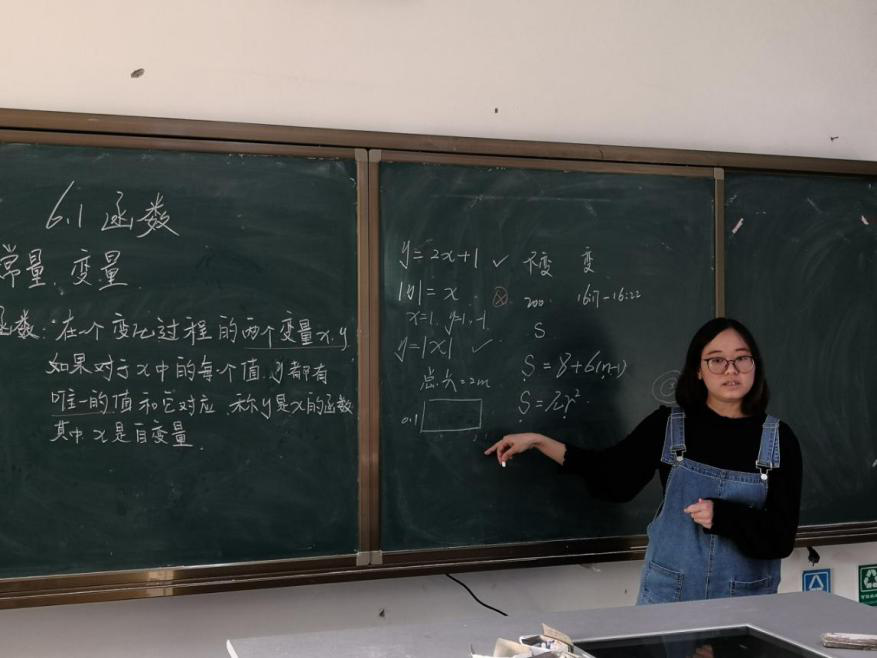 6.1 函数
常量、变量
函数：在一个变化过程的两个变量x,y
如果对于x中的每个值,y都有
唯一的值和它对应,称y是x的函数
其中x是自变量
y=2x+1 ✓
|y|=x ⊗
x=1, y=1,-1
y=|x| ✓
=2m
0.1
不变 变
200 16:17-16:22
S
S=8+6(n-1)
S=πr²